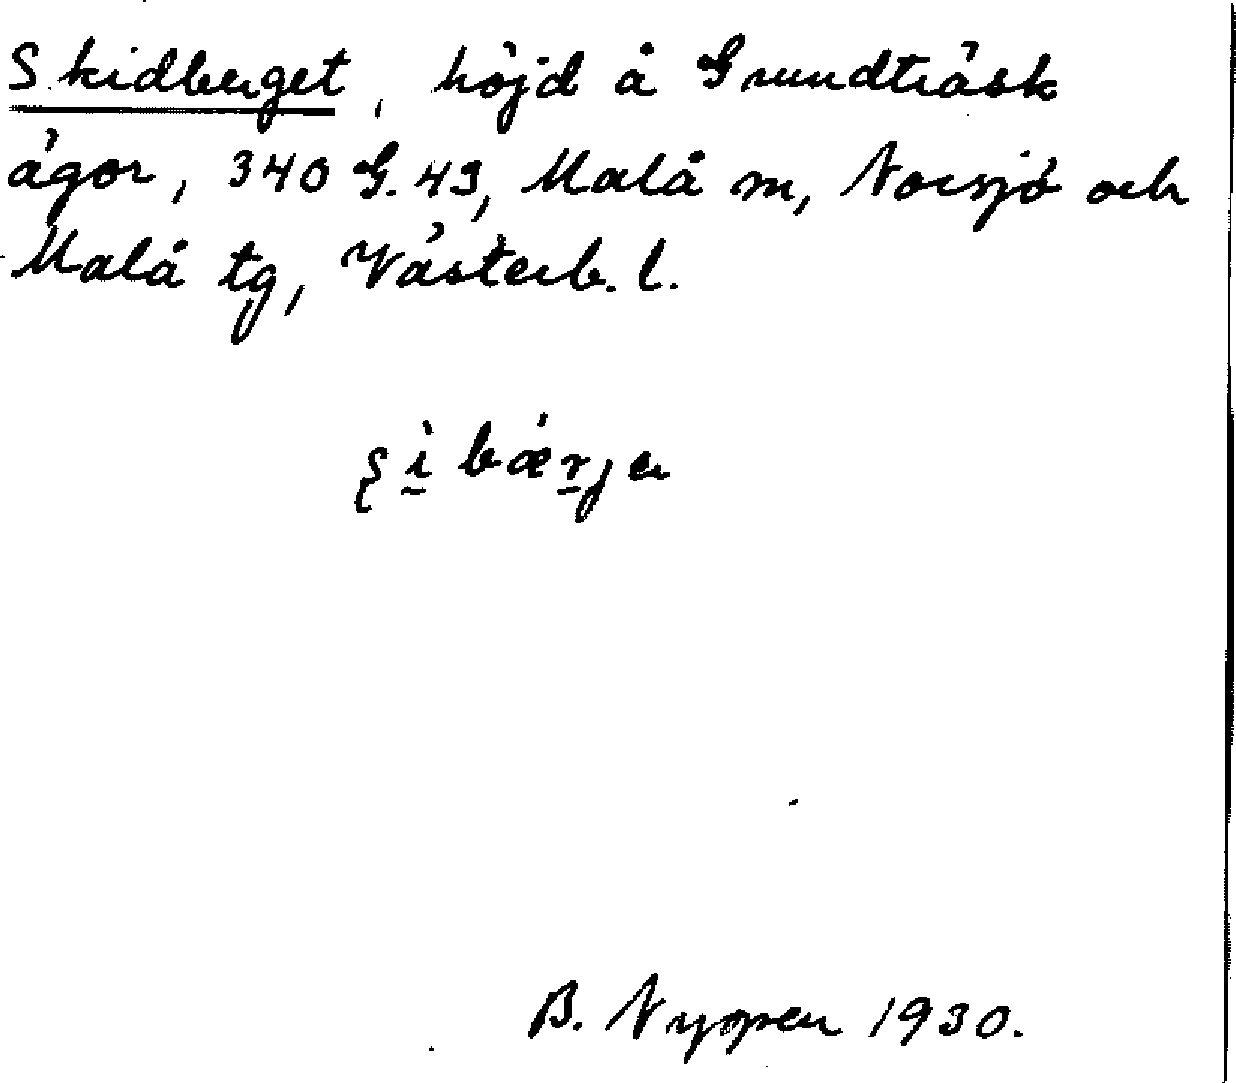 Skidberget, höjd å Grundträsk
ägor, 340 G. 49, Malå m, Norsjö och
Malå tg, Västerb. l.
B. Nyopen 1930.